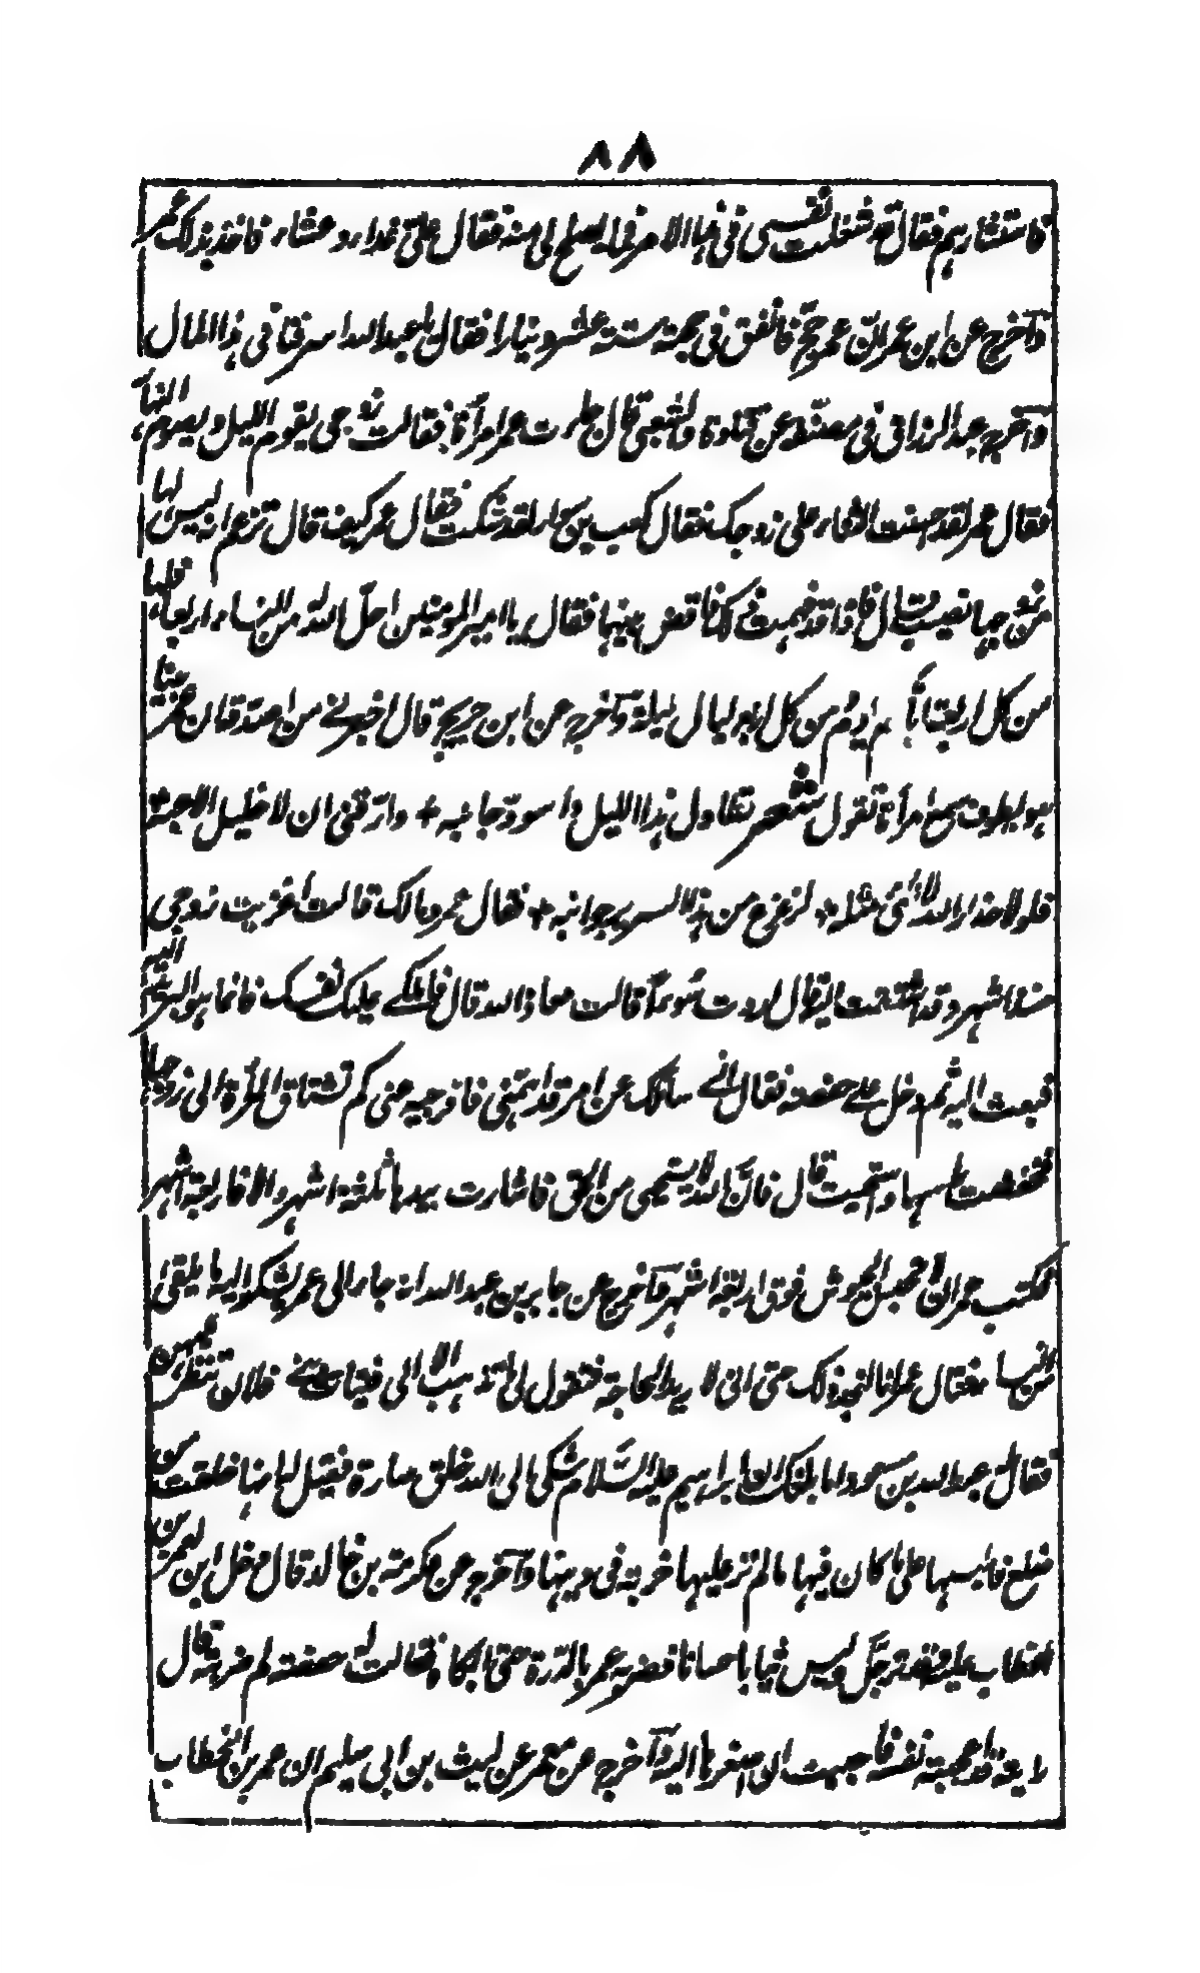 ٨٨
فاستشارهم فقال قد شغلت نفسى فى هذا الامر فما يصلح لى منه فقال على غداء وعشاء فاخذ بذلك عمر
وآخرج عن ابن عمر انّ عمر حجّ فانفق فى حجته ستة عشر دينارا فقال يا عبد الله اسرفنا فى هذا المال
وآخرج عبد الرزاق فى مصنفه عن قتادة والشعبى قال جاءت عمر امرأة فقالت زوجى يقوم الليل ويصوم النهار
فقال عمر لقد احسنت الثناء على زوجك فقال كعب بن سوار لقد شكت فقال عمر كيف قال تزعم انه ليس لها
من زوجها نصيب قال فاذا قد فهمت ذلك فاقض بينهما فقال يا امير المومنين احلّ الله له من النساء اربعا فلها
من كل اربعة ايام يوم ومن كل اربع ليال ليلة وآخرج عن ابن جريج قال اخبرنى من اصدقه ان عمر بينا
هو يطوف سمع امرأة تقول شعر تطاول هذا الليل واسودّ جانبه + وارّقنى ان لا خليل الاعبه +
فلولا حذار الله لا شئ مثله + لزعزع من هذا السرير جوانبه + فقال عمر ومالك قالت اغزيت زوجى
منذ اشهر وقد اشتقت اليه قال اردت سوءًا قالت معاذ الله قال فاملكى عليك نفسك فانما هو البريد اليه
فبعث اليه ثم دخل على حفصة فقال انى سائلك عن امر قد اهمّنى فافرجيه عنى كم تشتاق المرأة الى زوجها
فخفضت راسها واستحيت قال فانّ الله لا يستحيى من الحق فاشارت بيدها ثلثة اشهر والا فاربعة اشهر
فكتب عمر ان لا تحبس الجيوش فوق اربعة اشهر وآخرج عن جابر بن عبد الله انه جاء الى عمر يشكو اليه ما يلقى
من النساء فقال عمر انا لنجد ذلك حتى انى لا ريد الحاجة فتقول لى ما تذهب الا الى فتيات بنى فلان تنظر اليهن
فقال له عبد الله بن مسعود اما بلغك ان ابراهيم عليه السّلام شكى الى الله خلق سارة فقيل له انها خلقت من
ضلع فالبسها على ما كان فيها ما لم تر عليها خربة فى دينها وآخرج عن عكرمة بن خالد قال دخل ابن لعمر بن
الخطاب عليه وقد ترجّل ولبس ثيابا حسانا فضربه عمر بالدّرة حتى ابكاه فقالت له حفصة لم ضربته قال
رايته قد اعجبته نفسه فاحببت ان اصغرها اليه وآخرج عن معمر عن ليث بن ابى سليم ان عمر بن الخطاب